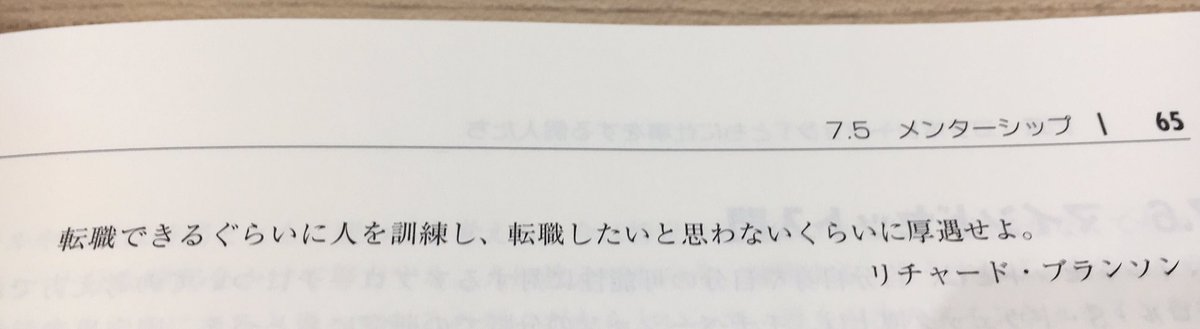 7.5 メンターシップ | 65
転職できるぐらいに人を訓練し、転職したいと思わないくらいに厚遇せよ。
リチャード・ブランソン